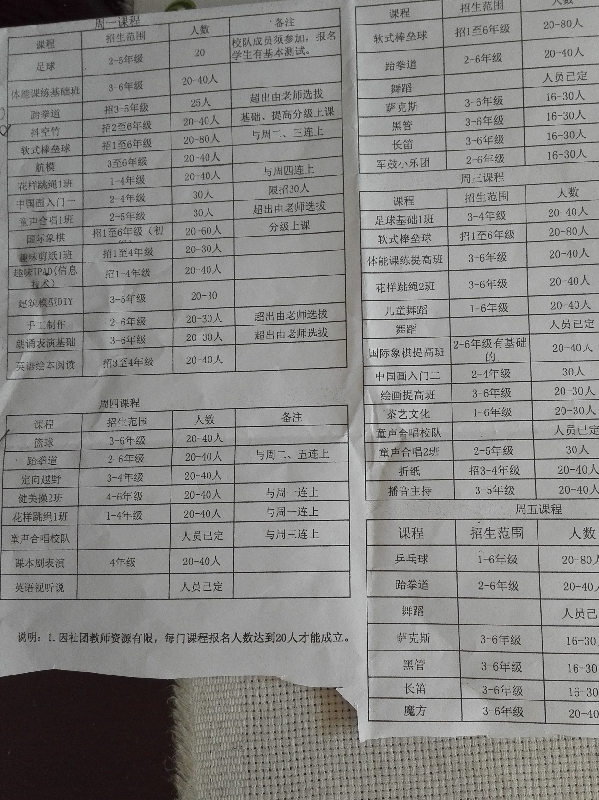 周一课程
课程 招生范围 人数 备注
足球 2-5年级 20 校队成员须参加，报名学生有基本测试。
体能课练基础班 3-6年级 20-40人
跆拳道 招3-5年级 25人 超出由老师选拔
抖空竹 招2至6年级 20-40人 基础、提高分级上课
软式棒垒球 招1至6年级 20-80人 与周二、三连上
航模 3至6年级 20-40人
花样跳绳1班 1-4年级 20-40人 与周四连上
中国画入门一 2-4年级 30人 限招30人
童声合唱1班 2-5年级 30人 超出由老师选拔
国际象棋 招1至6年级（初 20-60人 分级上课
趣味剪纸1班 招1至4年级 20-30人
趣味IPAD(信息技术) 招1-4年级 20-40人
建筑模型DIY 3-5年级
手工制作 2-6年级 20-30人 超出由老师选拔
朗诵表演基础 3-6年级 20-30人 超出由老师选拔
英语绘本阅读 招3至4年级 20-40人
周四课程
课程 招生范围 人数 备注
篮球 3-6年级 20-40人
跆拳道 2-6年级 20-40人 与周二、五连上
定向越野 3-4年级 20-40人
健美操2班 4-6年级 20-40人 与周一连上
花样跳绳1班 1-4年级 20-40人 与周一连上
童声合唱校队 人员已定 与周三连上
课本剧表演 4年级 20-40人
英语视听说 人员已定
说明：1.因社团教师资源有限，每门课程报名人数达到20人才能成立。
课程 招生范围 人数
软式棒垒球 招1至6年级 20-80人
跆拳道 2-6年级 20-40人
舞蹈 人员已定
萨克斯 3-6年级 16-30人
黑管 3-6年级 16-30人
长笛 3-6年级 16-30人
军鼓小乐团 2-6年级 16-30人
周三课程
课程 招生范围 人数
足球基础1班 3-4年级 20-40人
软式棒垒球 招1至6年级 20-80人
体能课练提高班 3-6年级 20-40人
花样跳绳2班 3-6年级 20-40人
儿童舞蹈 1-6年级 20-40人
舞蹈 人员已定
国际象棋提高班 2-6年级有基础的 20-40人
中国画入门二 2-4年级 30人
绘画提高班 3-6年级 20-30人
茶艺文化 1-6年级 20-30人
童声合唱校队 人员已定
童声合唱2班 2-5年级 30人
折纸 招3-4年级 20-40人
播音主持 3-5年级 20-40人
周五课程
课程 招生范围 人数
乒乓球 1-6年级 20-80人
跆拳道 2-6年级 20-40人
舞蹈 人员已
萨克斯 3-6年级 16-30人
黑管 3-6年级 16-30人
长笛 3-6年级 16-30人
魔方 3-6年级 20-40